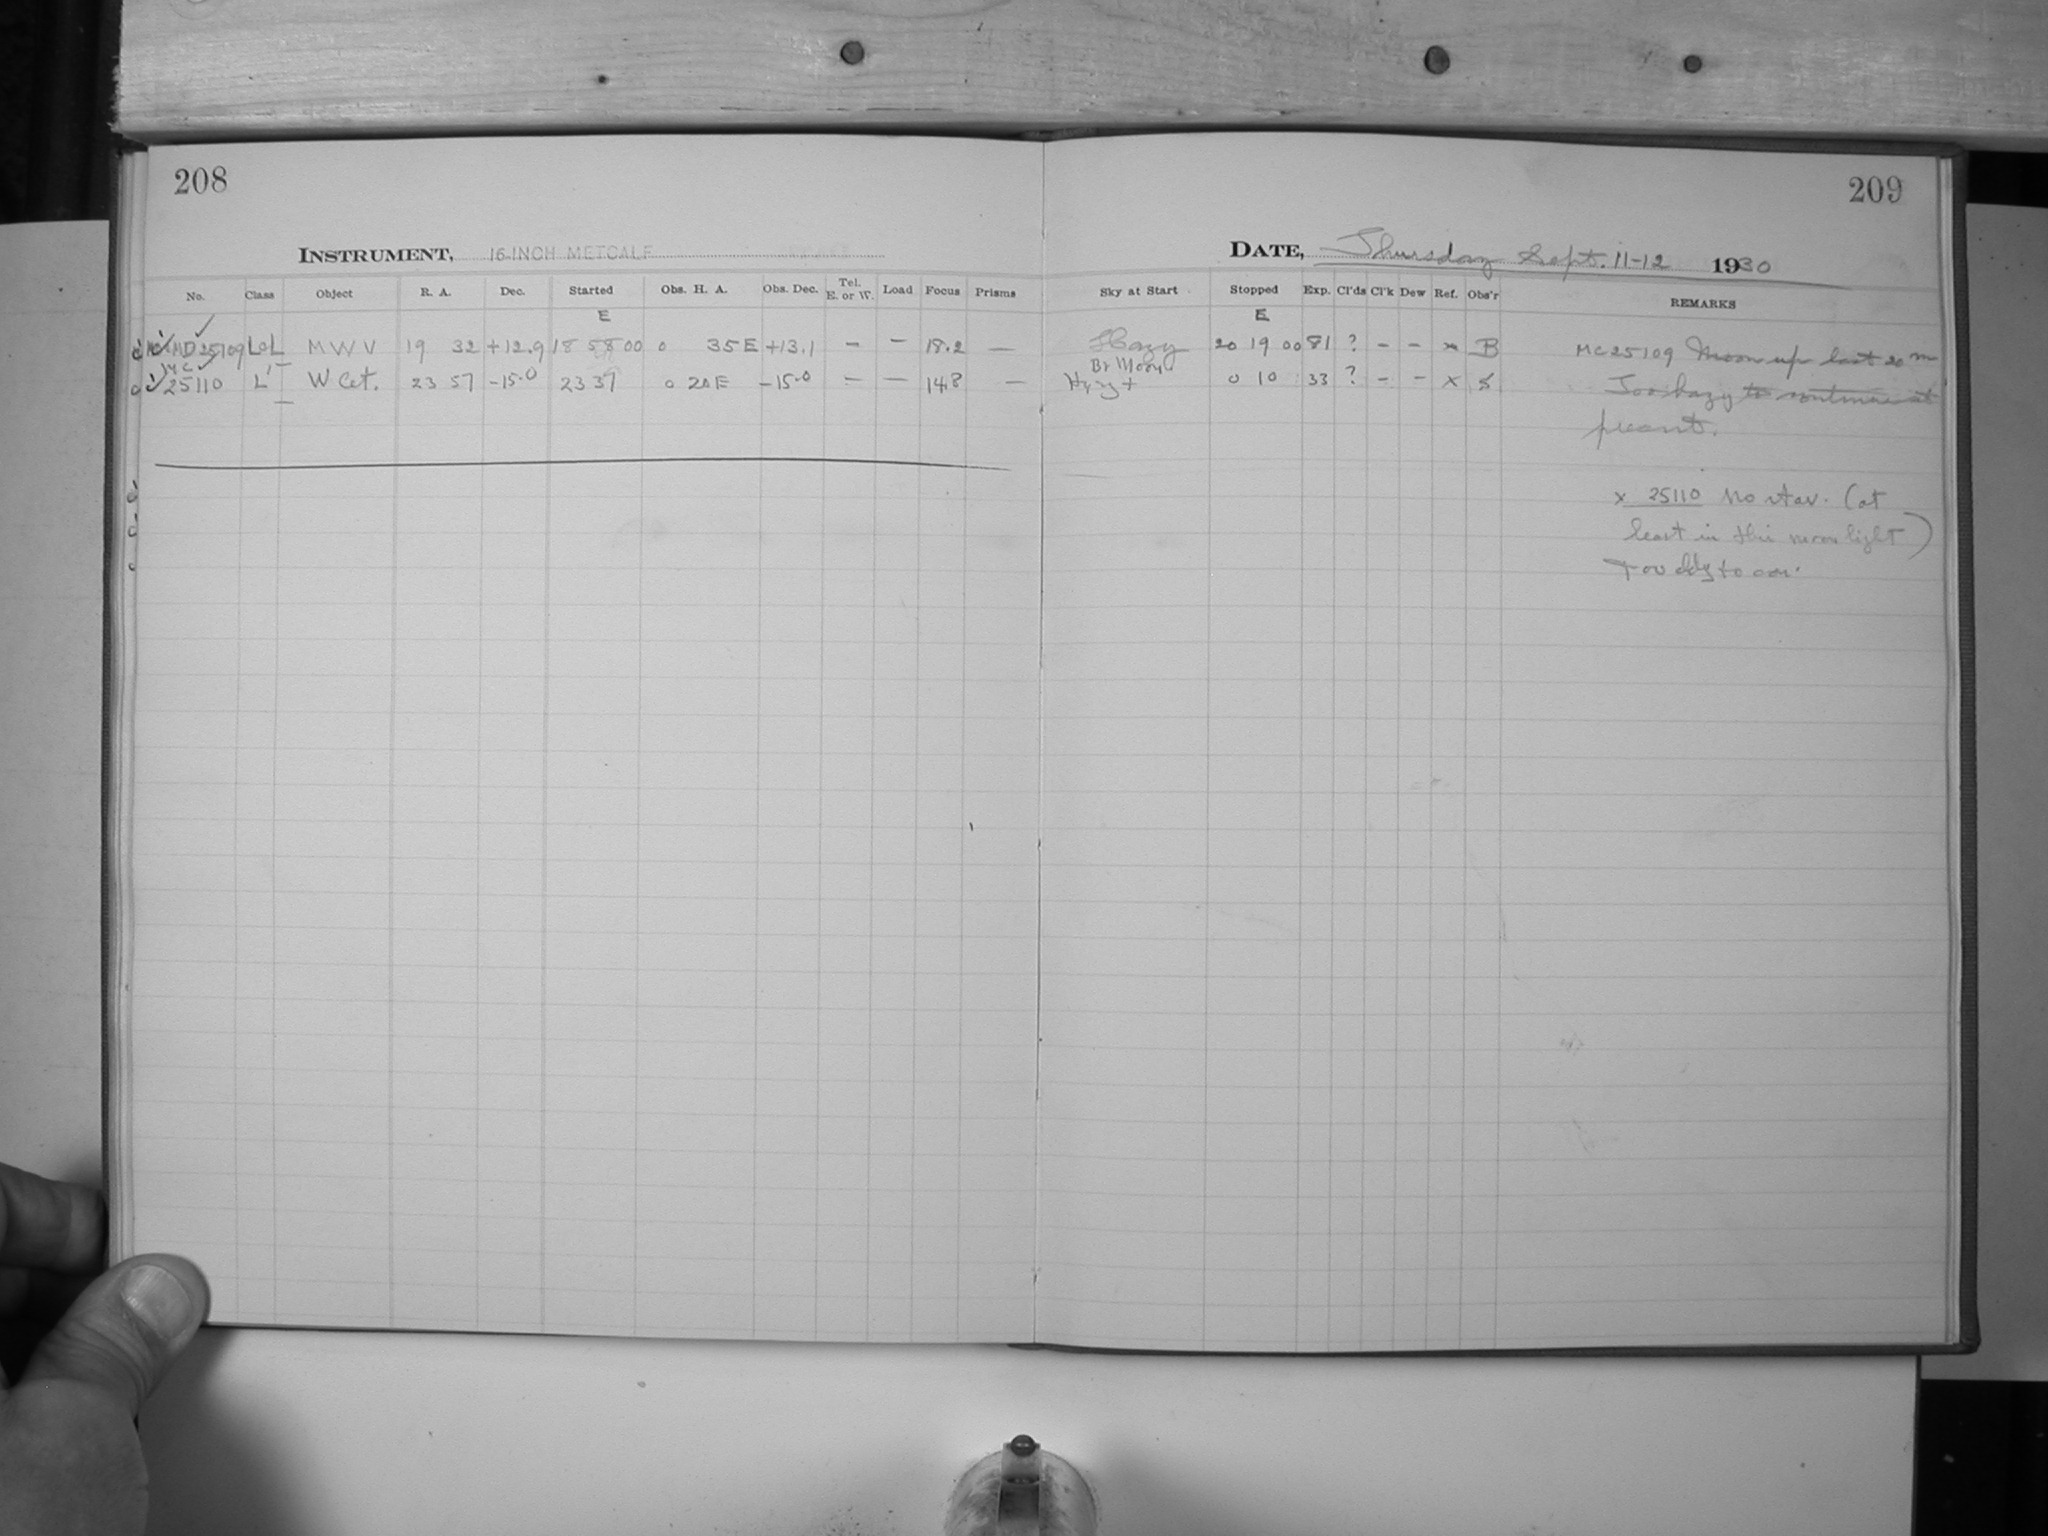 208
209
INSTRUMENT, 16-INCH METCALF
DATE, Thursday Sept. 11-12 1930
No. Class Object R. A. Dec. Started Obs. H. A. Obs. Dec. Tel. E. or W. Load Focus Prisms
Sky at Start Stopped Exp. Cl'ds Cl'k Dew Ref. Obs'r REMARKS
E
E
MD 25109 L MWV 19 32 +12.9 18 58 00 0 35 E +13.1 – – 18.2 —
Hazy 20 19 00 81 ? – – x B MC 25109 Moon up last 20 m
MC
25110 L W Cet. 23 57 -15.0 23 37 0 20 E -15.0 – — 14.8 —
Br Moon
Hazy + 0 10 33 ? – – x S Too hazy to continue at
present.
x 25110 No star. (at
least in this moon light)